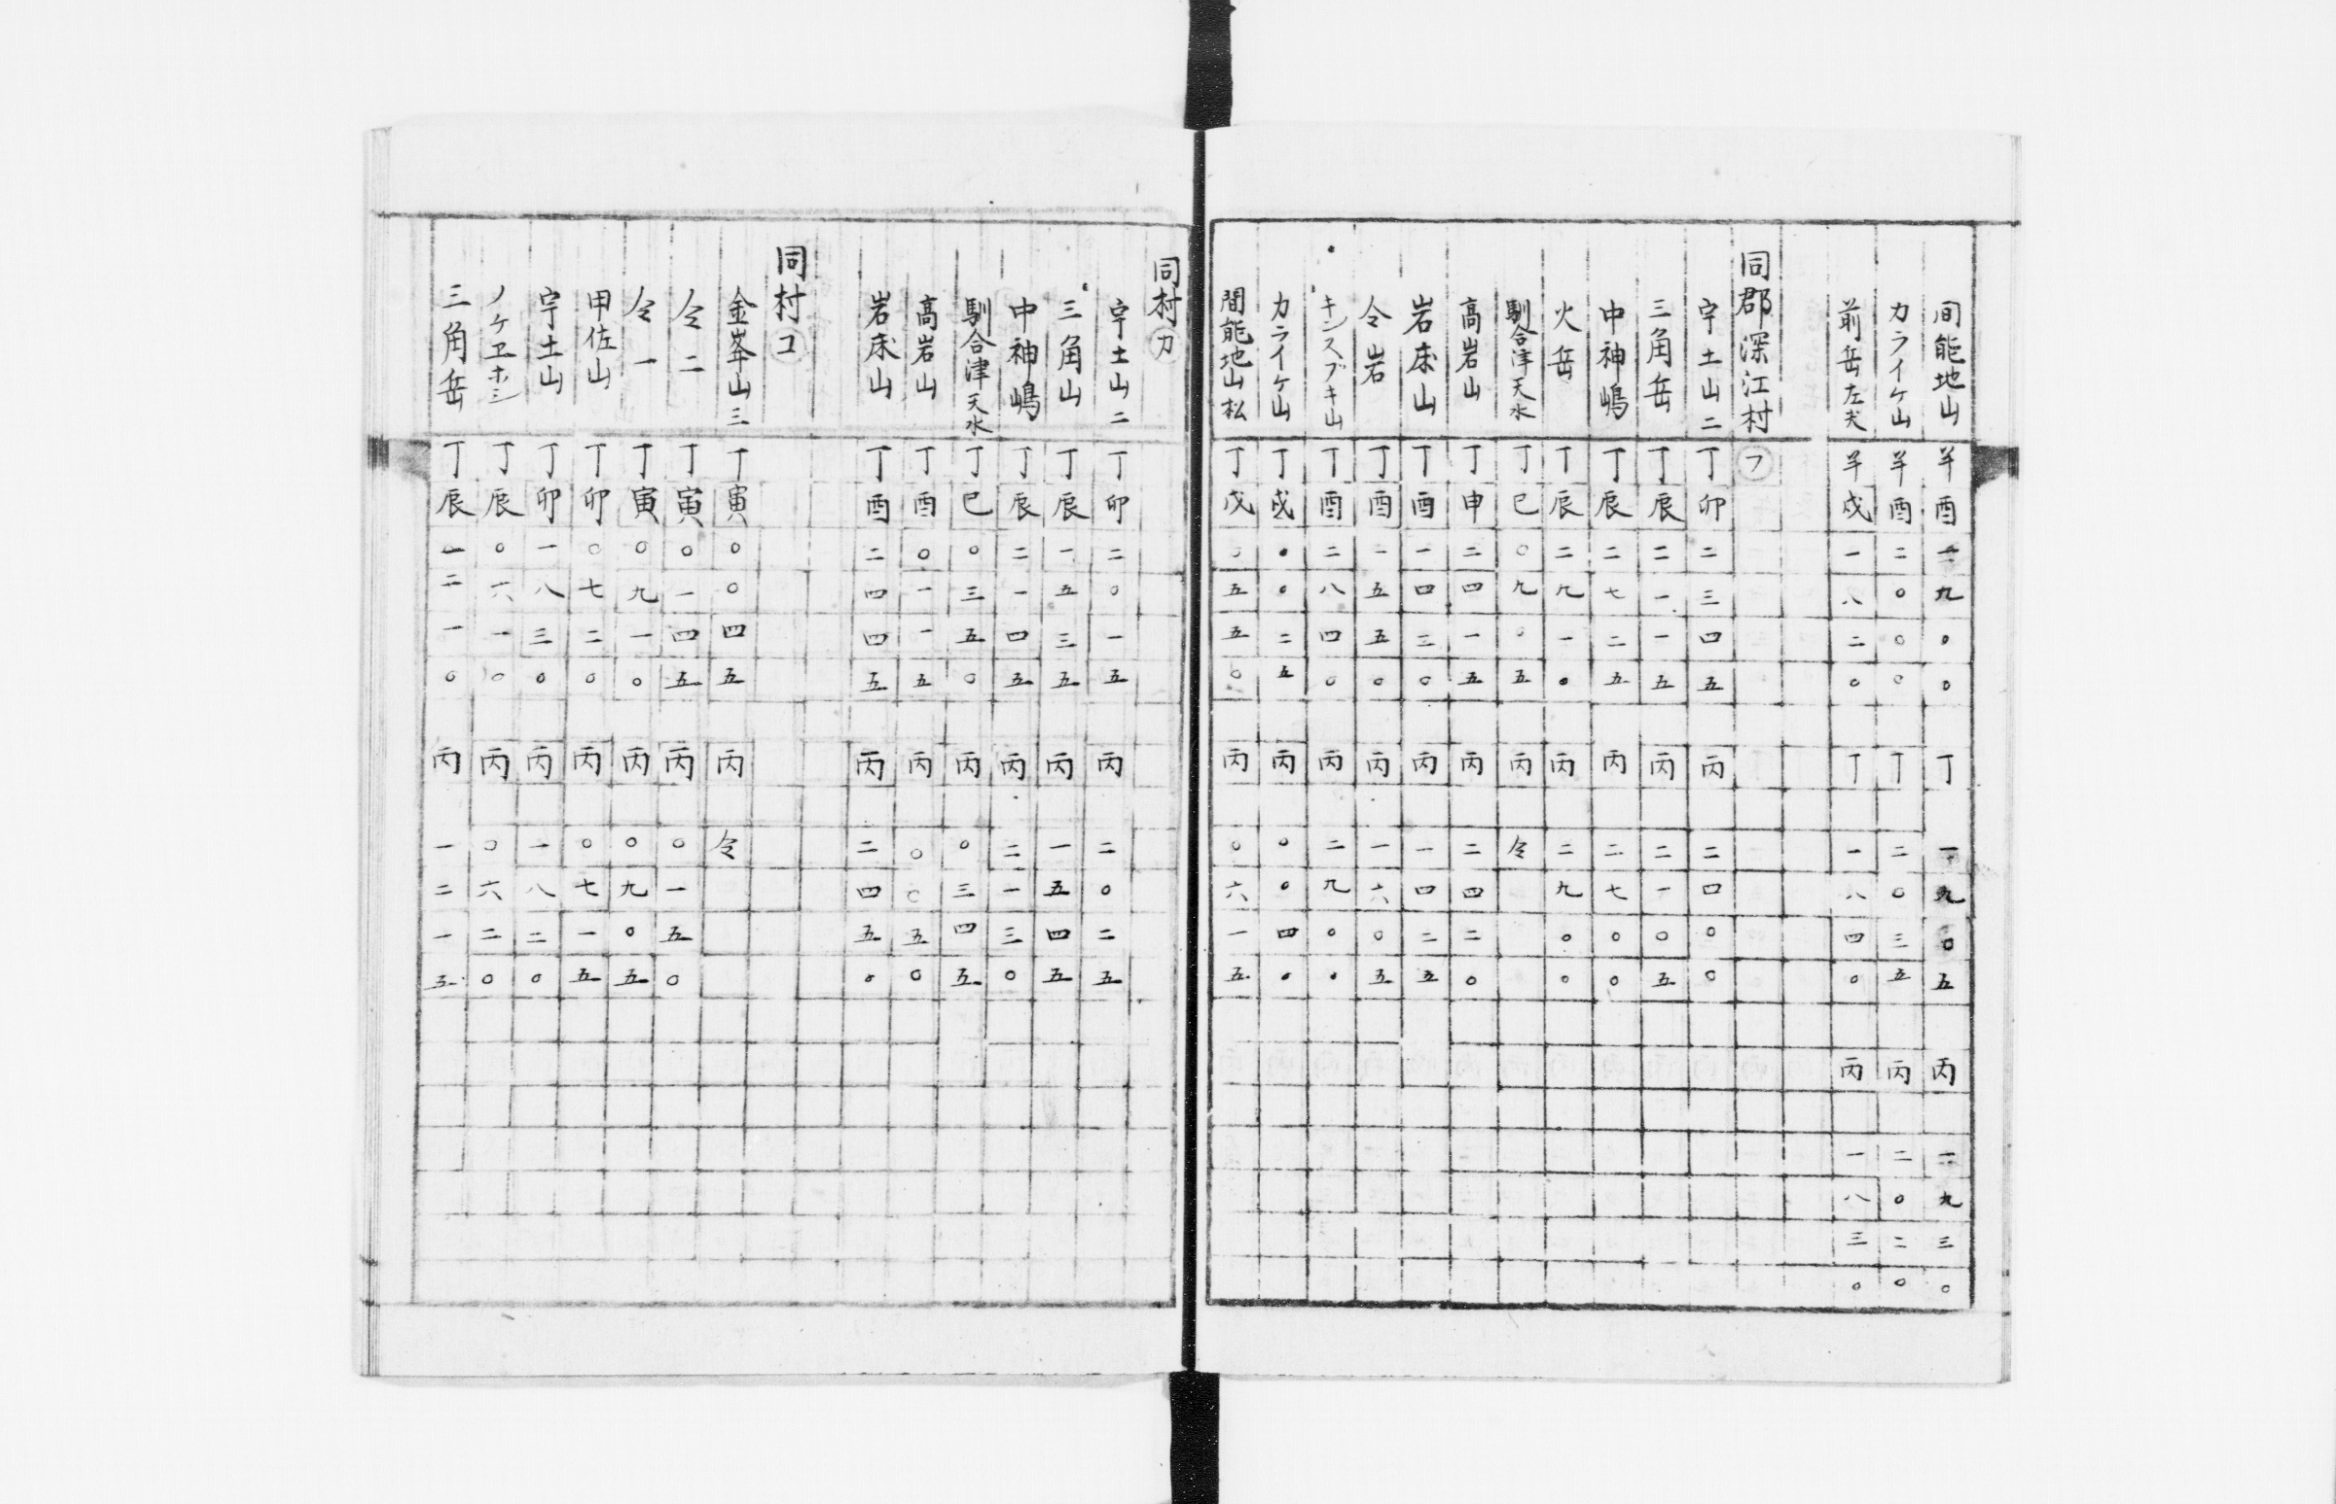 间能地山 羊酉一九〇〇 丁 一九〇五 丙 一九三〇
カライケ山 羊酉二〇〇〇 丁 二〇三五 丙 二〇二〇
前岳左犬 羊戌一八二〇 丁 一八四〇 丙 一八三〇
同郡深江村 フ
宇土山二 丁卯二三四五 丙 二四〇〇
三角岳 丁辰二一一五 丙 二一〇五
中神嶋 丁辰二七二五 丙 二七〇〇
火岳 丁辰二九一〇 丙 二九〇〇
馴合津天水 丁巳〇九〇五 丙 仝
高岩山 丁申二四一五 丙 二四二〇
岩床山 丁酉一四三〇 丙 一四二五
仝岩 丁酉一五五〇 丙 一六〇五
キンスブキ山 丁酉二八四〇 丙 二九〇〇
カライケ山 丁戌〇〇二五 丙 〇〇四〇
間能地山松 丁戌〇五五〇 丙 〇六一五
同村 カ
宇土山二 丁卯二〇一五 丙 二〇二五
三角山 丁辰一五三五 丙 一五四五
中神嶋 丁辰二一四五 丙 二一三〇
馴合津天水 丁巳〇三五〇 丙 〇三四五
高岩山 丁酉〇一一五 丙 〇〇五〇
岩床山 丁酉二四四五 丙 二四五〇
同村 コ
金峯山三 丁寅〇〇四五 丙 仝
仝二 丁寅〇一四五 丙 〇一五〇
仝一 丁寅〇九一〇 丙 〇九〇五
甲佐山 丁卯〇七二〇 丙 〇七一五
宇土山 丁卯一八三〇 丙 一八二〇
ノケヱホシ 丁辰〇六一〇 丙 〇六二〇
三角岳 丁辰一二一〇 丙 一二一五